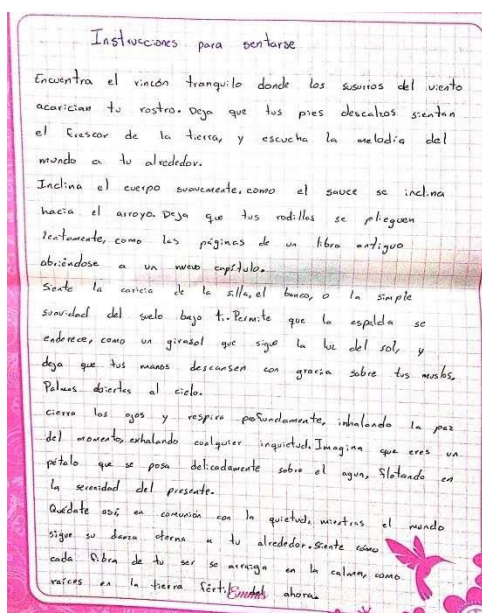 Instrucciones para sentarse
Encuentra el rincón tranquilo donde los susurros del viento
acarician tu rostro. Deja que tus pies descalzos sientan
el frescor de la tierra, y escucha la melodía del
mundo a tu alrededor.
Inclina el cuerpo suavemente, como el sauce se inclina
hacia el arroyo. Deja que tus rodillas se plieguen
lentamente, como las páginas de un libro antiguo
abriéndose a un nuevo capítulo.
Siente la caricia de la silla, el banco, o la simple
suavidad del suelo bajo ti. Permite que la espalda se
enderece, como un girasol que sigue la luz del sol, y
deja que tus manos descansen con gracia sobre tus muslos.
Palmas abiertas al cielo.
Cierra los ojos y respira profundamente, inhalando la paz
del momento, exhalando cualquier inquietud. Imagina que eres un
pétalo que se posa delicadamente sobre el agua, flotando en
la serenidad del presente.
Quédate así, en comunión con la quietud, mientras el mundo
sigue su danza eterna a tu alrededor. Siente cómo
cada fibra de tu ser se arraiga en la calma, como
raíces en la tierra fértil del ahora.